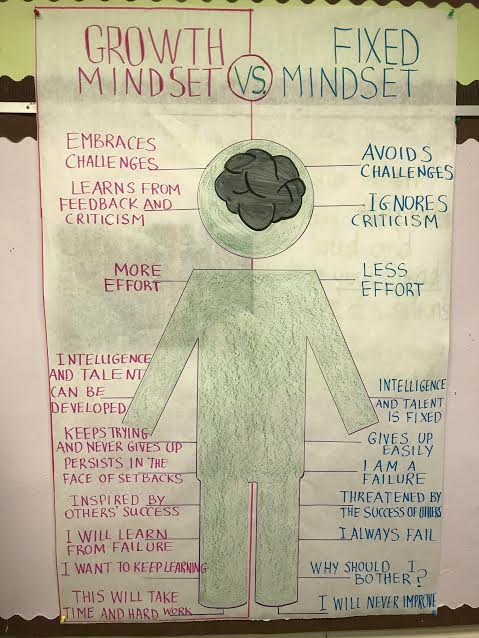 GROWTH MINDSET VS. FIXED MINDSET
EMBRACES
CHALLENGES
LEARNS FROM
FEEDBACK AND
CRITICISM
MORE
EFFORT
INTELLIGENCE
AND TALENT
CAN BE
DEVELOPED
KEEPS TRYING
AND NEVER GIVES UP
PERSISTS IN THE
FACE OF SETBACKS
INSPIRED BY
OTHERS' SUCCESS
I WILL LEARN
FROM FAILURE
I WANT TO KEEP LEARNING
THIS WILL TAKE
TIME AND HARD WORK
AVOIDS
CHALLENGES
IGNORES
CRITICISM
LESS
EFFORT
INTELLIGENCE
AND TALENT
IS FIXED
GIVES UP
EASILY
I AM A
FAILURE
THREATENED BY
THE SUCCESS OF OTHERS
I ALWAYS FAIL
WHY SHOULD I
BOTHER?
I WILL NEVER IMPROVE